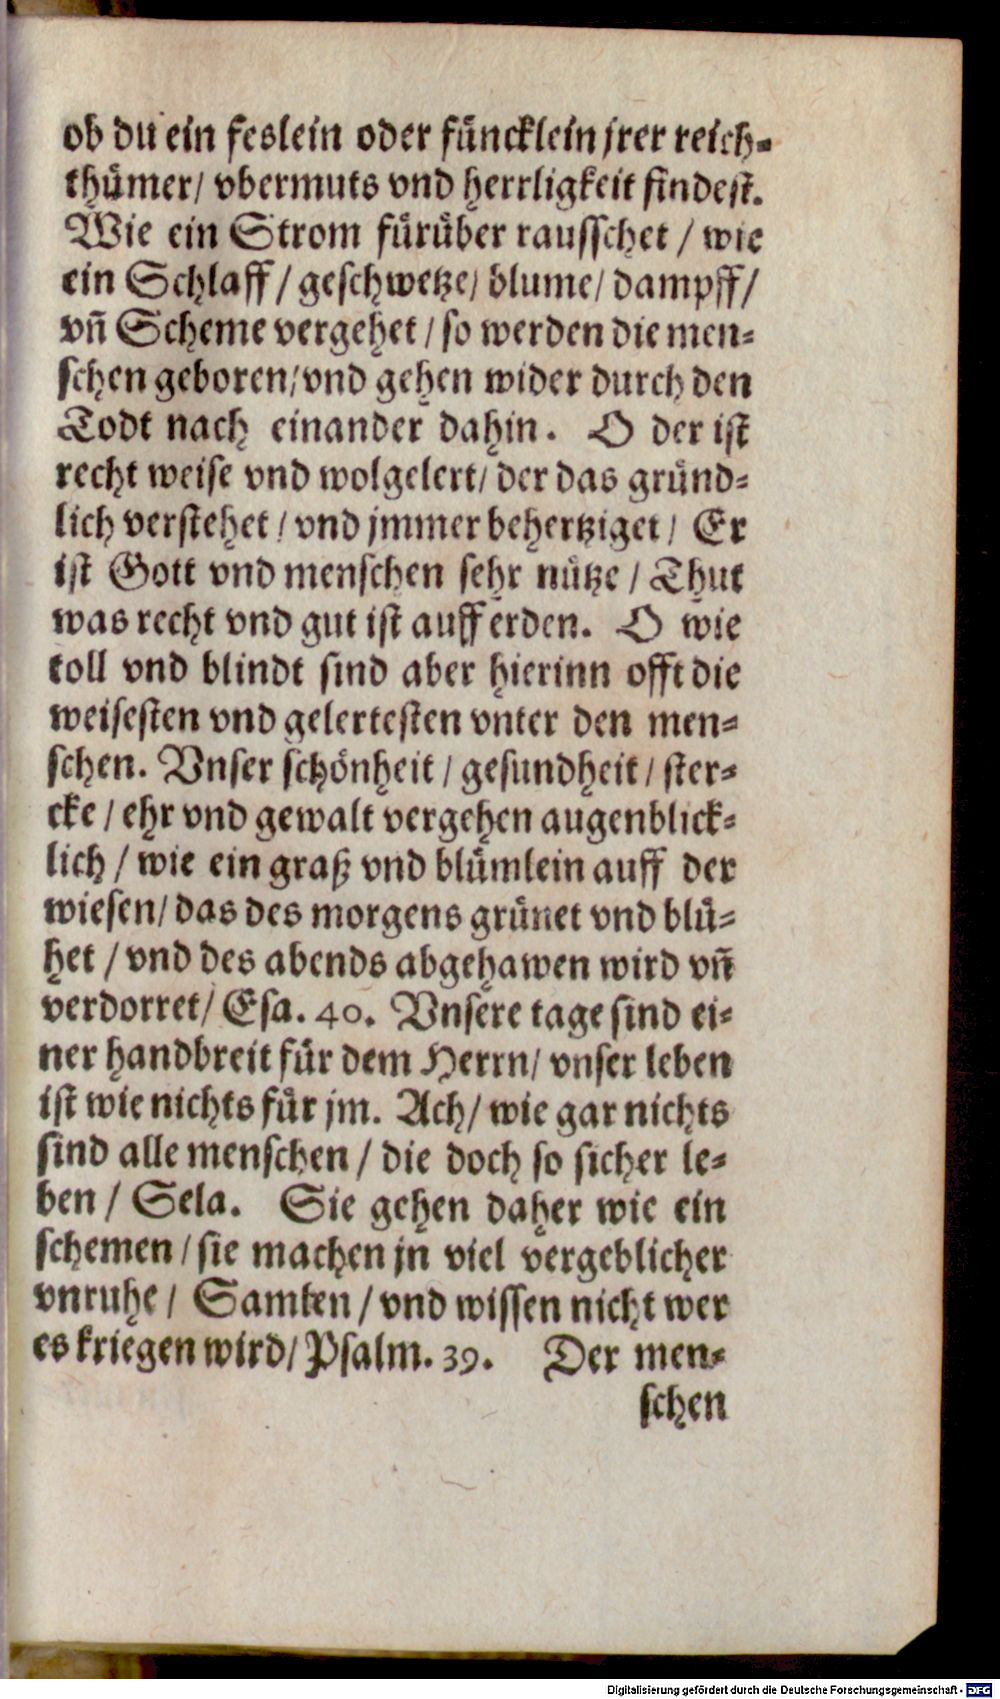 ob du ein feslein oder füncklein jrer reich-
thümer/ vbermuts vnd herrligkeit findest.
Wie ein Strom fürüber rausschet / wie
ein Schlaff / geschwetze/ blume/ dampff/
vn̄ Scheme vergehet / so werden die men-
schen geboren/ vnd gehen wider durch den
Todt nach einander dahin. O der ist
recht weise vnd wolgelert/ der das gründ-
lich verstehet / vnd jmmer behertziget / Er
ist Gott vnd menschen sehr nütze / Thut
was recht vnd gut ist auff erden. O wie
toll vnd blindt sind aber hierinn offt die
weisesten vnd gelertesten vnter den men-
schen. Vnser schönheit / gesundheit / ster-
cke / ehr vnd gewalt vergehen augenblick-
lich / wie ein graß vnd blümlein auff der
wiesen/ das des morgens grünet vnd blü-
het / vnd des abends abgehawen wird vn̄
verdorret/ Esa. 40. Vnsere tage sind ei-
ner handbreit für dem Herrn/ vnser leben
ist wie nichts für jm. Ach/ wie gar nichts
sind alle menschen / die doch so sicher le-
ben / Sela. Sie gehen daher wie ein
schemen / sie machen jn viel vergeblicher
vnruhe / Samlen / vnd wissen nicht wer
es kriegen wird/ Psalm. 39. Der men-
schen
Digitalisierung gefördert durch die Deutsche Forschungsgemeinschaft - DFG